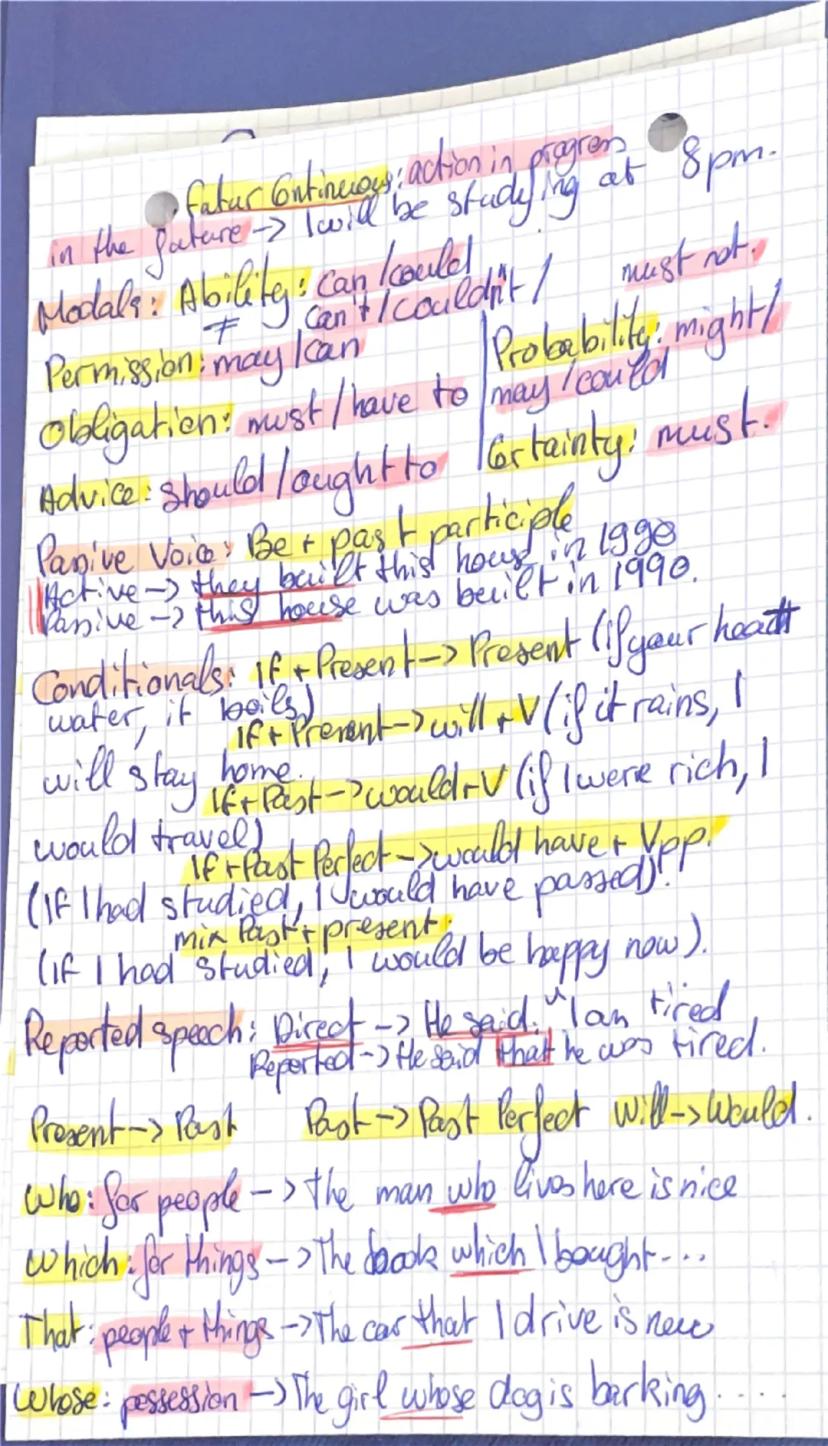 Futur Continuous: action in progress
in the future -> I will be studying at 8pm.
Modals: Ability: can/could
≠ can't/couldn't / must not.
Permission: may/can
Obligation: must/have to
Advice: should/ought to
Probability: might/
may/could
Certainty: must.
Passive Voice: Be + past participle
Active -> they built this house in 1990
Passive -> this house was built in 1990.
Conditionals: If + Present -> Present (if your heat
water, it boils)
If + Present -> will + V (if it rains, I
will stay home.
If + Past -> would + V (if I were rich, I
would travel)
If + Past Perfect -> would have + Vpp.
(If I had studied, I would have passed).
mix Past + present.
(if I had studied, I would be happy now).
Reported speech: Direct -> He said: "I am tired
Reported -> He said that he was tired.
Present -> Past Past -> Past Perfect Will -> Would.
Who: for people -> the man who lives here is nice
Which: for things -> The book which I bought...
That: people + things -> The car that I drive is new
Whose: possession -> The girl whose dog is barking.....